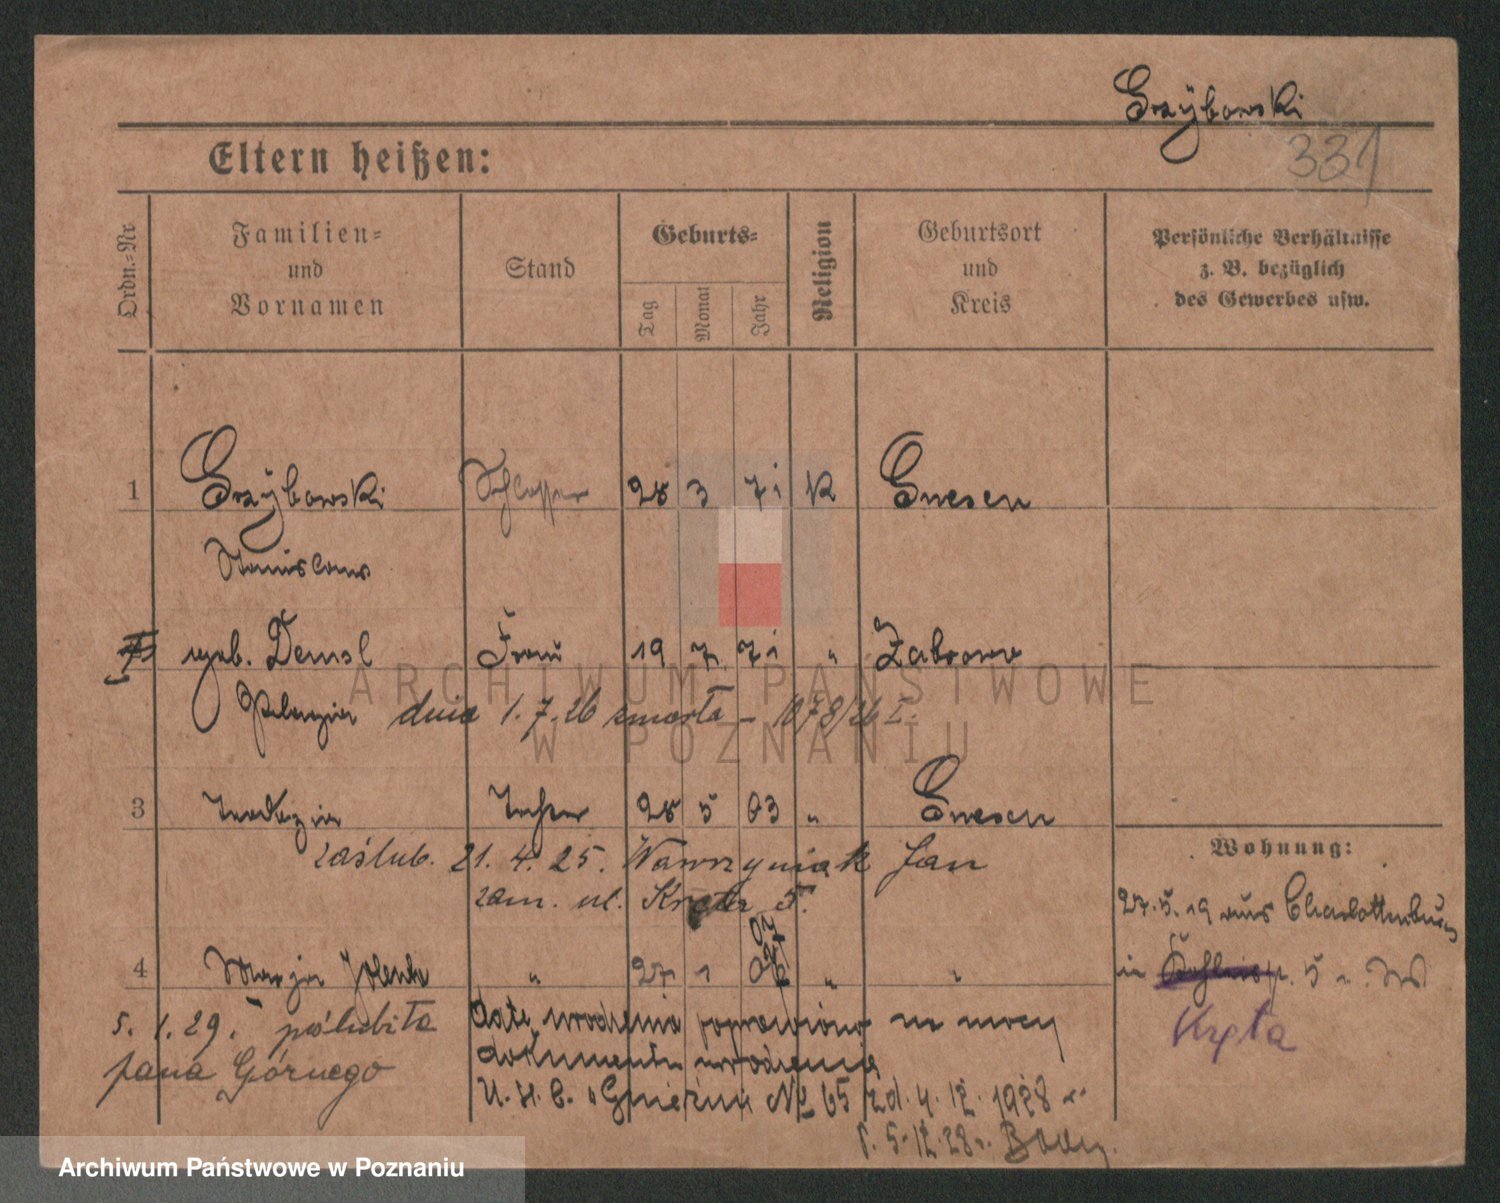 Grzÿbowski
331
Eltern heißen:
Ordn.-Nr
Familien-
und
Vornamen
Stand
Geburts-
Tag
Monat
Jahr
Religion
Geburtsort
und
Kreis
Persönliche Verhältnisse
z. B. bezüglich
des Gewerbes usw.
1 Grzÿbowski Schlosser 28 3 71 K Gnesen
Stanislaus
geb. Demsl Frau 19 7 71 " Zabrowo
Pelagia dnia 1.7.26 zmarła - 1078/26 I.
3 Tochter 28 5 03 " Gnesen
zaślub. 21. 4. 25. Wawrzyniak Jan
zam. ul. Kręta 5.
Wohnung:
27.5.19 aus Charlottenburg
in 5
Kręta
4 Marja " 27 1 07 " "
5. 1. 29. poślubiła
Jana Górnego
datę urodzenia poprawiono na mocy
dokumentu urodzenia
U. S. C. Gniezno № 65 zd. 4. 12. 1928
5.12.28
ARCHIWUM PAŃSTWOWE
W POZNANIU
Archiwum Państwowe w Poznaniu